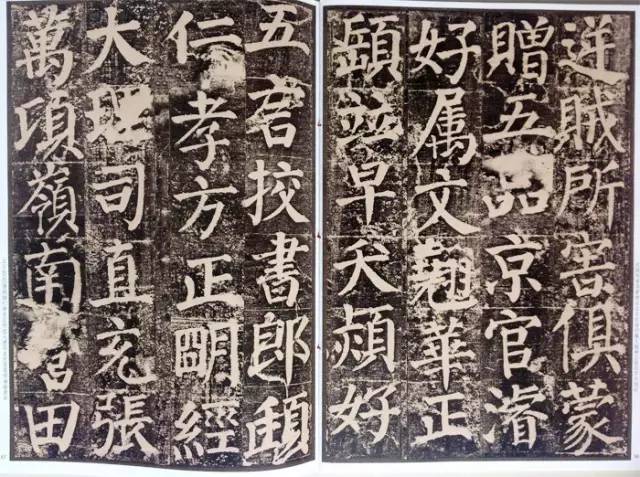 逆賊所害俱蒙
贈五品京官濬
好属文翹華正
頵並早夭熲好
五言挍書郎頲
仁孝方正明經
大理司直充張
萬頃嶺南營田